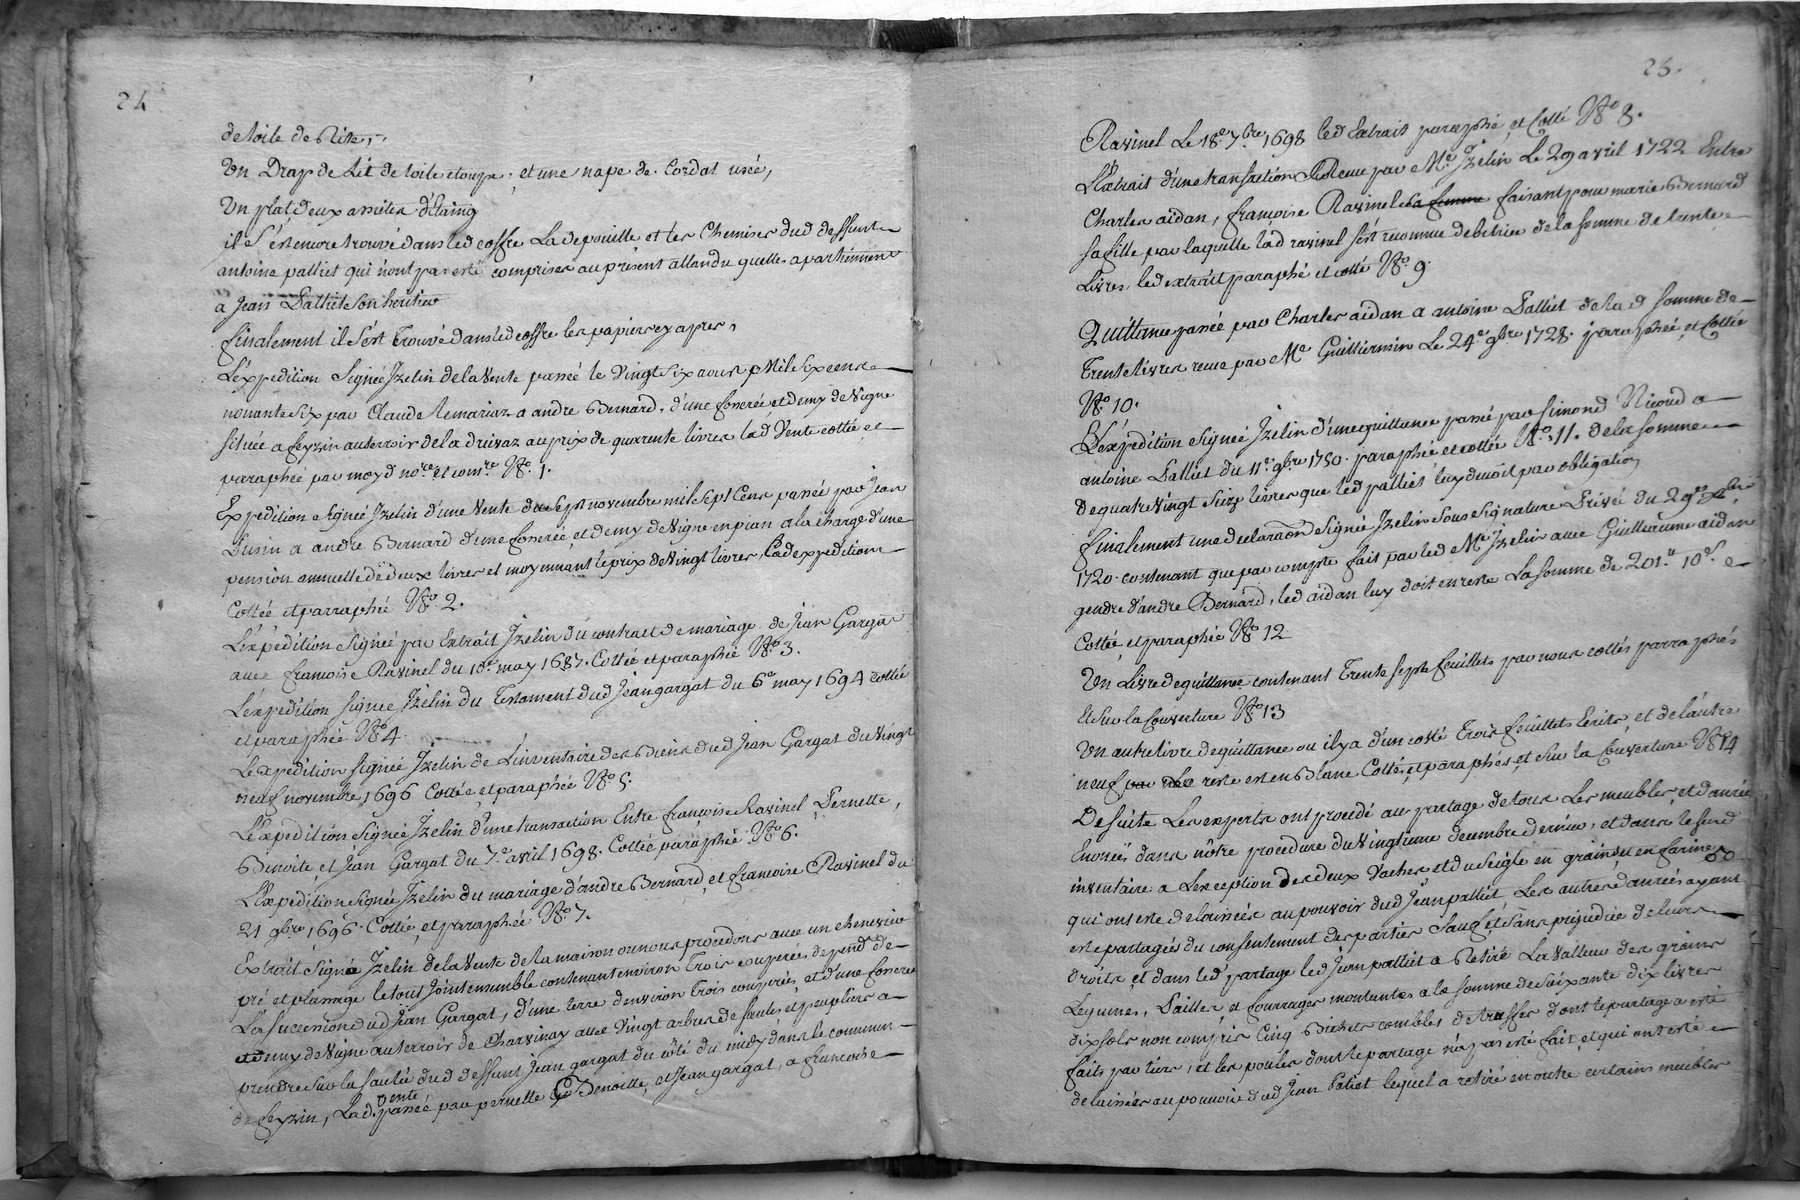 24
de toile de Rite,
Un Drap de Lit de toile etoupe, et une nape de Cordat usée,
Un plat, deux assietes d'Etaing
il s'est encore trouvé dans led coffre La depouille et les Chemises dud deffunt
antoine palliet qui n'ont pas esté comprises au present attandu quelles apartiennent
a Jean Palliet son heritier
finalement il s'est Trouvé dans led coffre les papiers cy apres,
L'expedition Signée Jzelin de la Vente passée le Vingt Six aoust Mil Six cens
nonante Six par Claude Remariaz a andre Bernard, d'une fosserée et demy de Vigne
située a feyzin au terroir de la druvaz au prix de quarente livres lad Vente cottée et
paraphée par moy d nore. et comre. No. 1.
Expedition Signée Jzelin d'une Vente du Sept novembre mil Sept Cens passée par Jean
a andre Bernard d'une fosserée et demy de Vigne en pian a la charge d'une
pension annuelle de deux livres et moyennant le prix de Vingt livres, Lad expedition
Cottée et parraphée No. 2.
L'expedition Signée par Extrait Jzelin du contract de mariage de Jean Gargat
avec francoise Ravinel du 10e. may 1687. Cottée et paraphée No. 3.
L'expedition signée Jzelin du Testament dud Jean gargat du 6e may 1694 cottée
et paraphée No 4.
L'expedition signée Jzelin de L'inventaire des Biens dud Jean Gargat du Vingt
neuf novembre 1696 Cottée et paraphée No 5.
L'expedition Signée Jzelin d'une transaction Entre francoise Ravinel, Pernette,
Benoite, et Jean Gargat du 7e avril 1698. Cottée paraphée No. 6.
L'Expedition signée Jzelin du mariage d'andre Bernard, et francoise Ravinel du
21 9bre 1696. Cottée et paraphée No. 7.
Extrait Signé Jzelin de la Vente de la maison ou nous procedons avec un chenevier
pré et plassage le tout Joint ensemble contenant environ Trois couperés depend de
La Succession dud Jean Gargat, d'une terre d'environ Trois couperés, et d'une fosseree
et demy de Vigne au terroir de Charvinay avec Vingt arbres de saules et peupliers a
prendre sur la saulée dud deffunt Jean gargat du côté du midy dans le commun
de feyzin, Lad. vente passée par pernette Benoitte, et Jean gargat, a francoise
25.
Ravinel Le 18e 7bre 1698 led Extrait paraphé et Cotté No 8.
L'Extrait d'une transaction Receue par Me. Jzelin Le 29 avril 1722 Entre
Charles aidan, francoise Ravinel sa femme faisant pour marie Bernard
sa fille par laquelle lad ravinel s'est reconnue debitrice de la somme de trente
Livres, led extrait paraphé et cotté No. 9.
Quittance passée par Charles aidan a antoine Palliet de la d somme de
Trente livres receue par Me Guilliermin Le 24e 9bre 1728. paraphée, et Cottée
No. 10.
L'expedition Signée Jzelin d'une quittance passée par Simond Nicoud a
antoine Palliet du 11e. 9bre 1730. paraphée et cottée No. 11. de la somme
de quatre Vingt Seize livres que led palliet luy devoit par obligation
finalement une declaraôn signée Jzelin sous signature Privée du 29e
1720. contenant que par compte fait par led Me Jzelin avec Guilleaume aidan
gendre d'andre Bernard, led aidan luy doit en reste La somme de 201. 10s. e
Cottée, et paraphée No 12
Un Livre de quittance contenant Trente sept feuillets par nous cottés parraphés
et sur la Couverture No 13
Un autre livre de quittance ou il y a d'un costé Trois feuillets Ecrits, et de l'autre
neuf reste est en Blanc Cottés, et paraphés, et sur la Couverture No 14
De suite Les experts ont procedé au partage de tous Les meubles, et danrée
Enoncés dans nôtre procedure du Vingtieme decembre dernier, et dans le susd
inventaire a L'exception des deux Vaches et du Seigle en grains, et en farine
qui ont esté delaissés au pouvoir dud Jean palliet, Les autres danrées ayant
esté partagées du consentement des parties sauf et sans prejudice de leurs
droits, et dans led partage led Jean palliet a Retiré La Valleur des grains
Legumes, Pailles, et fourrages montantes a la somme de Soixante dix livres
dix sols non compris Cinq Bichets combles de truffes dont le partage a esté
fait par tiers, et les poules dont le partage n'a pas esté fait, et qui ont esté
delaissées au pouvoir dud Jean Paliet lequel a retiré en outre certains meubles